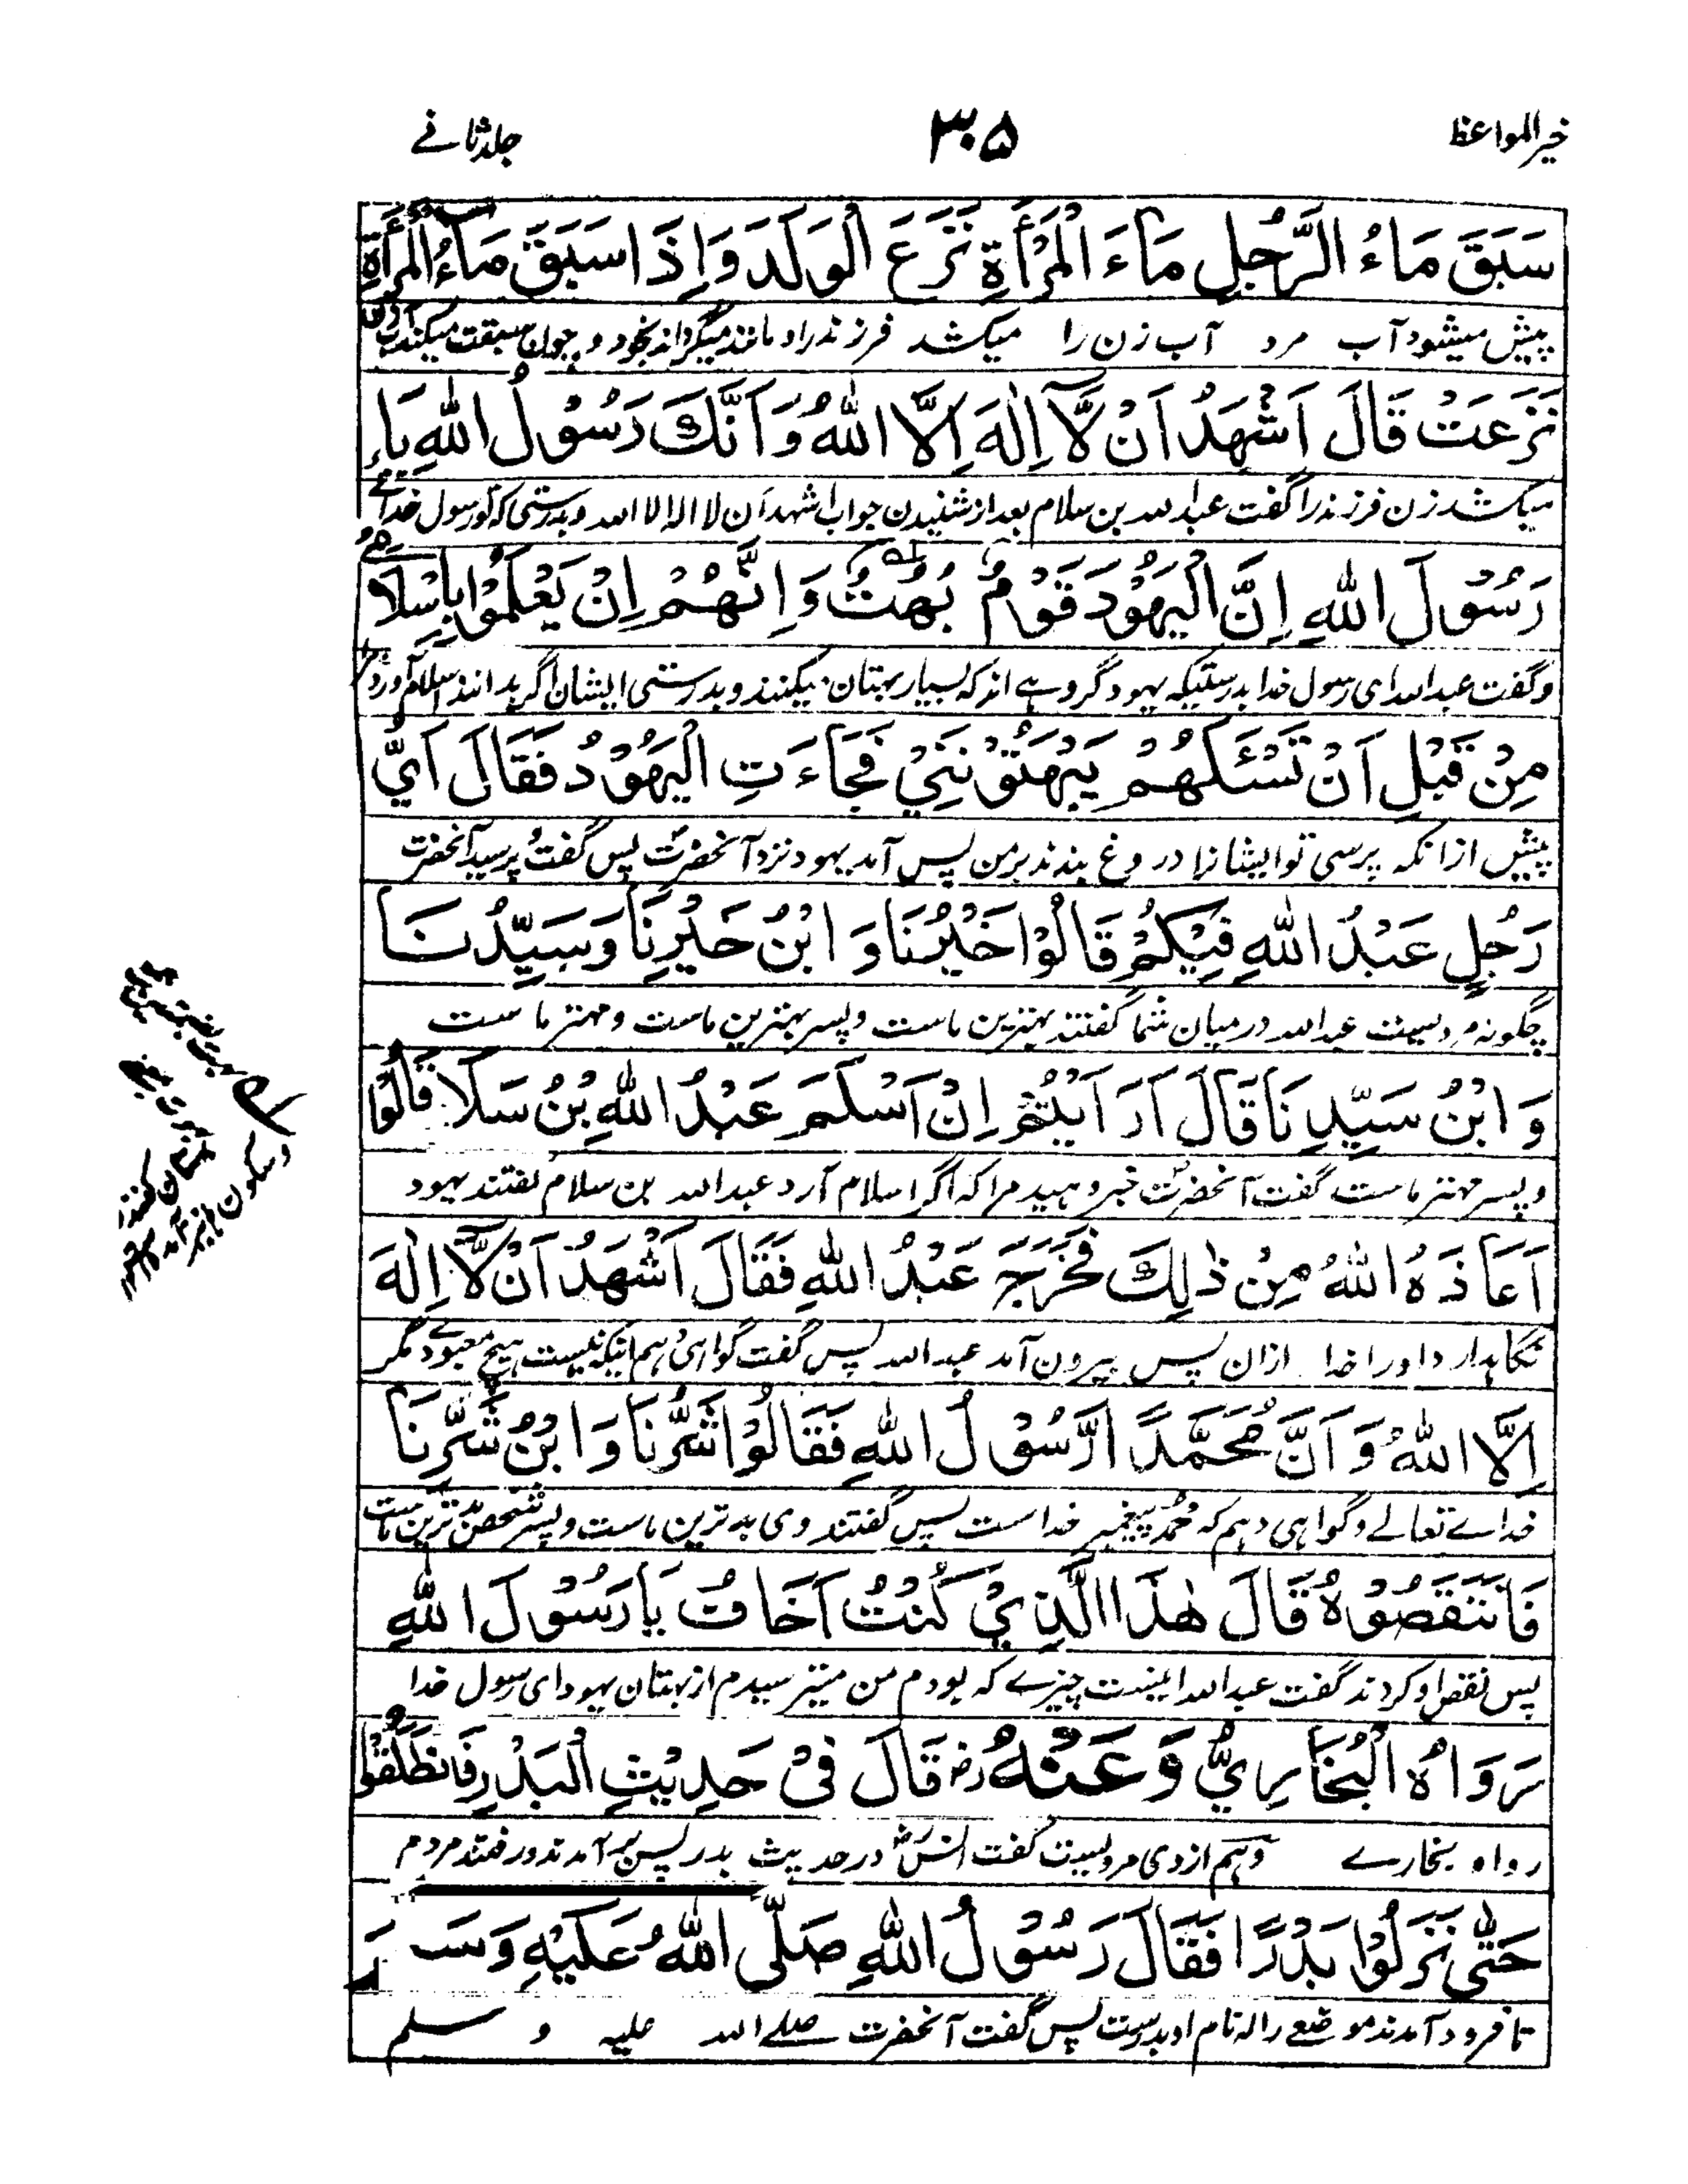 خیر المواعظ
۳۰۵
جلد ثانے
سَبَقَ مَاءُ الرَّجُلِ مَاءَ الْمَرْأَةِ نَزَعَ الْوَلَدَ وَاِذَا سَبَقَ مَاءُ الْمَرْأَةِ
پیش میشود آب مرد آب زن را میکشد فرزند را و مانند میگرداند بخود و چون سبقت میکند آب زن
نَزَعَتْ قَالَ اَشْهَدُ اَنْ لَّا اِلٰهَ اِلَّا اللهُ وَاَنَّكَ رَسُوْلُ اللهِ يَا
میکشد زن فرزند را گفت عبد الله بن سلام بعد از شنیدن جواب اشهد ان لا اله الا الله و بدرستی که تو رسول خدائے
رَسُوْلَ اللهِ اِنَّ الْيَهُوْدَ قَوْمٌ بُهُتٌ وَاِنَّهُمْ اِنْ يَعْلَمُوْا بِاِسْلَامِيْ
و گفت عبد الله ای رسول خدا بدرستیکه یهود گروهے اند که بسیار بهتان میکنند و بدرستی ایشان اگر بدانند اسلام آوردن
مِنْ قَبْلِ اَنْ تَسْئَلَهُمْ يَبْهَتُوْنَنِيْ فَجَاءَتِ الْيَهُوْدُ فَقَالَ اَيُّ
پیش ازانکه پرسی تو ایشانرا دروغ بندند بر من پس آمد یهود نزد آنحضرتؐ پس گفت پرسید آنحضرت
رَجُلٍ عَبْدُ اللهِ فِيْكُمْ قَالُوْا خَيْرُنَا وَابْنُ خَيْرِنَا وَسَيِّدُنَا
چگونه مردیست عبد الله درمیان شما گفتند بهترین ماست و پسر بهترین ماست و مهتر ماست
وَابْنُ سَيِّدِنَا قَالَ اَرَاَيْتُمْ اِنْ اَسْلَمَ عَبْدُ اللهِ بْنُ سَلَا قَالُوْا
و پسر مهتر ماست گفت آنحضرتؐ خبر دهید مرا که اگر اسلام آرد عبد الله بن سلام گفتند یهود
اَعَاذَهُ اللهُ مِنْ ذٰلِكَ فَخَرَجَ عَبْدُ اللهِ فَقَالَ اَشْهَدُ اَنْ لَّا اِلٰهَ
نگاهدارد او را خدا ازان پس بیرون آمد عبد الله پس گفت گواهی دهم اینکه نیست هیچ معبودے مگر
اِلَّا اللهُ وَاَنَّ مُحَمَّدًا رَّسُوْلُ اللهِ فَقَالُوْا شَرُّنَا وَابْنُ شَرِّنَا
خداے تعالے و گواهی دهم که محمد پیغمبر خداست پس گفتند وی بدترین ماست و پسر شخص بدترین ماست
فَانْتَقَصُوْهُ قَالَ هٰذَا الَّذِيْ كُنْتُ اَخَافُ يَا رَسُوْلَ اللهِ
پس نقص او کردند گفت عبد الله اینست چیزے که بودم من میترسیدم از بهتان یهود ای رسول خدا
رَوَاهُ الْبُخَارِيُّ وَعَنْهُ رض قَالَ فِىْ حَدِيْثِ الْبَدْرِ فَانْطَلَقُوْا
رواه بخارے و هم ازوی مرویست گفت انسؓ در حدیث بدر پس آمدند و رفتند مردم
حَتّٰى نَزَلُوْا بَدْرًا فَقَالَ رَسُوْلُ اللهِ صَلَّى اللهُ عَلَيْهِ وَسَ
تا فرود آمدند موضعے را که نام او بدرست پس گفت آنحضرت صلے الله علیه و سلم